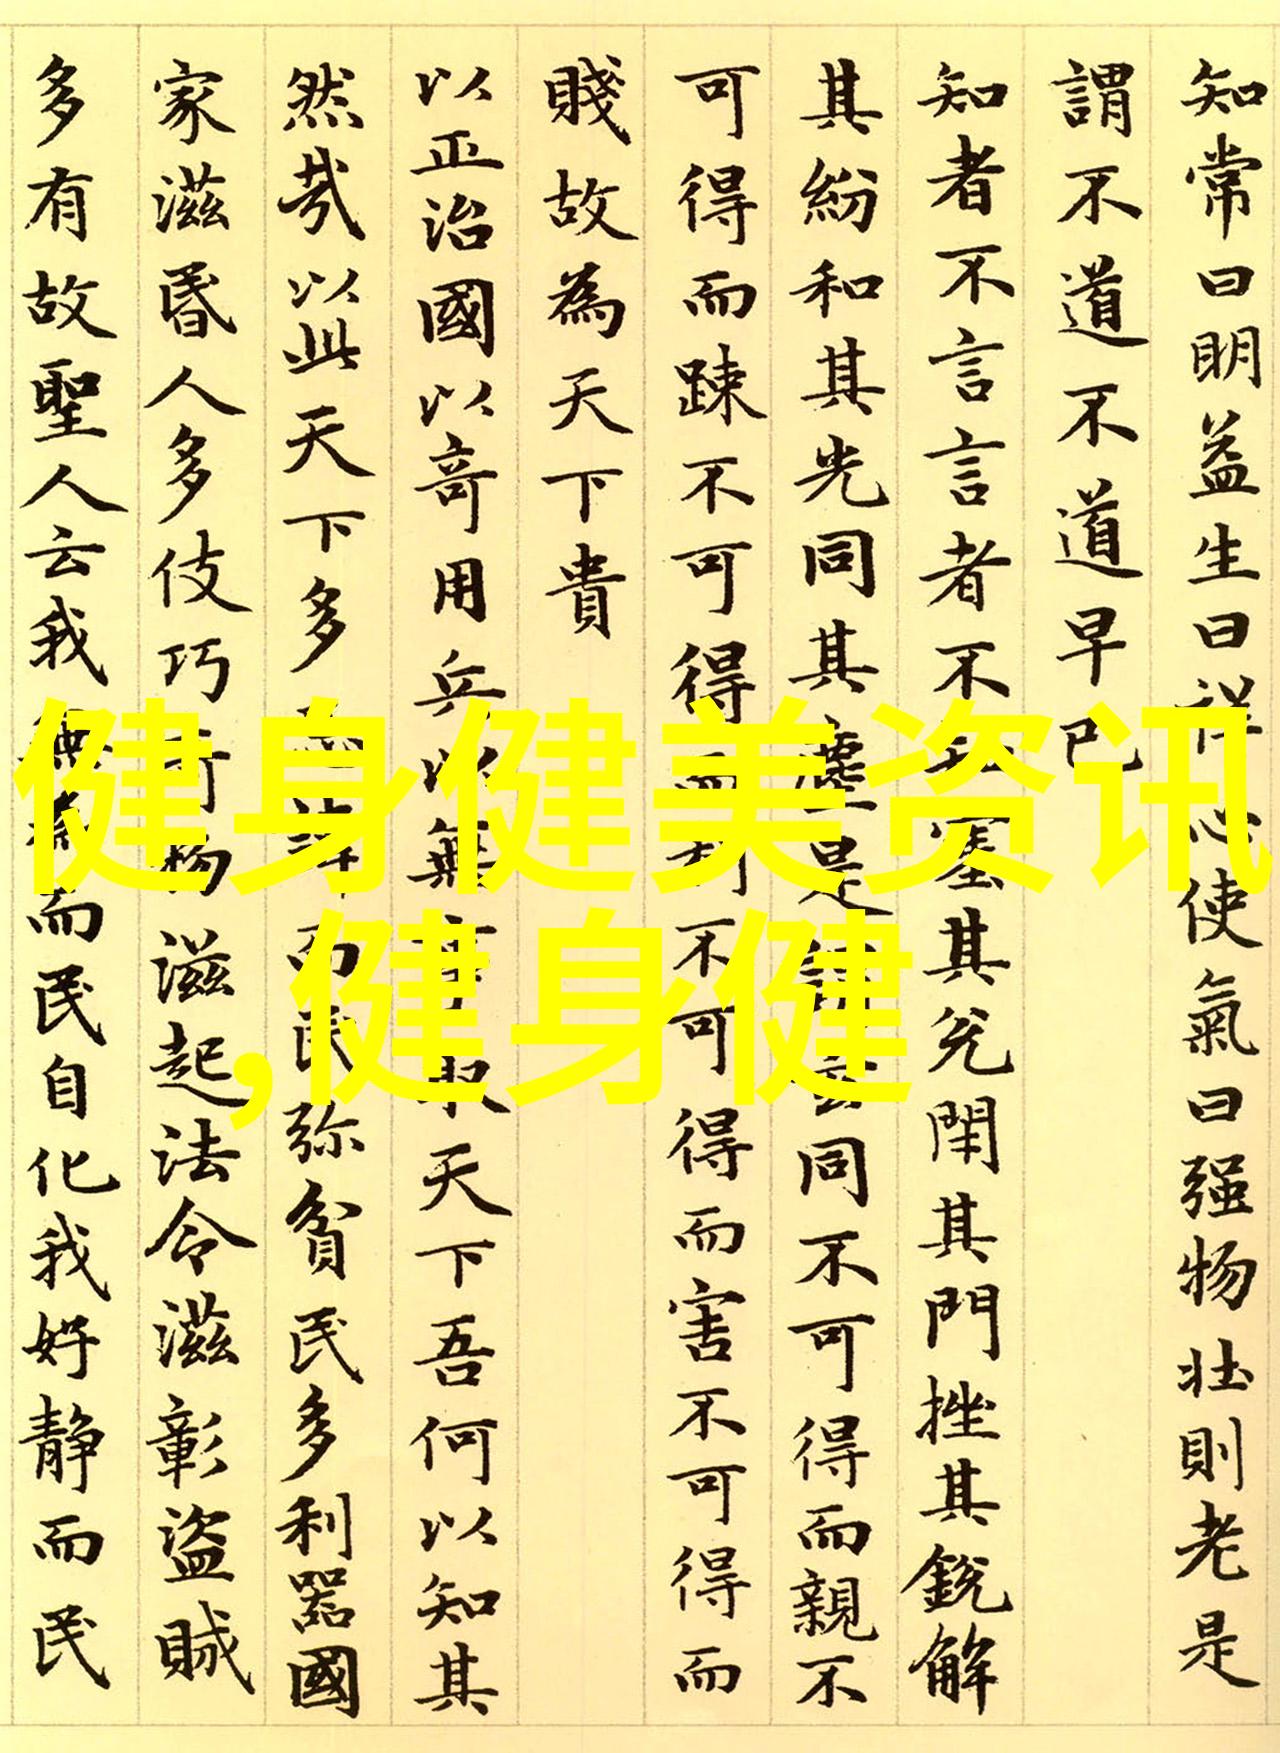 知常曰明益生曰祥心使氣曰强物壯則老是
謂不道不道早已
知者不言言者不知塞其兊閈其門挫其銳解
其紛和其光同其塵是謂玄同不可得而親不
可得而踈不可得而利不可得而害不可得而
賤故為天下貴
以正治國以竒用兵以無事取天下吾何以知其
然㢤以此天下多忌諱而民弥貧民多利器國
家滋昬人多伎巧竒物滋起法令滋彰盜賊
多有故聖人云我無為而民自化我好静而民
健身健美资讯
,健身健